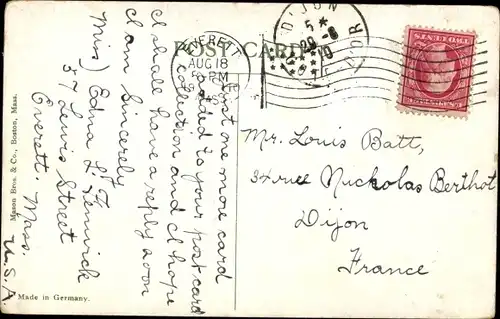 POST CARD
EVERETT
AUG 18
DIJON
5*
20-8
10
Just one more card
added to your post card
collection and I hope
I shall have a reply soon
I am Sincerely
(Miss) Edna L. Fenwick
57 Lewis Street
Everett. Mass.
U.S.A.
Mr. Louis Batt,
34 rue Nuckolas Berthot
Dijon
France
Mason Bros. & Co., Boston, Mass.
Made in Germany.